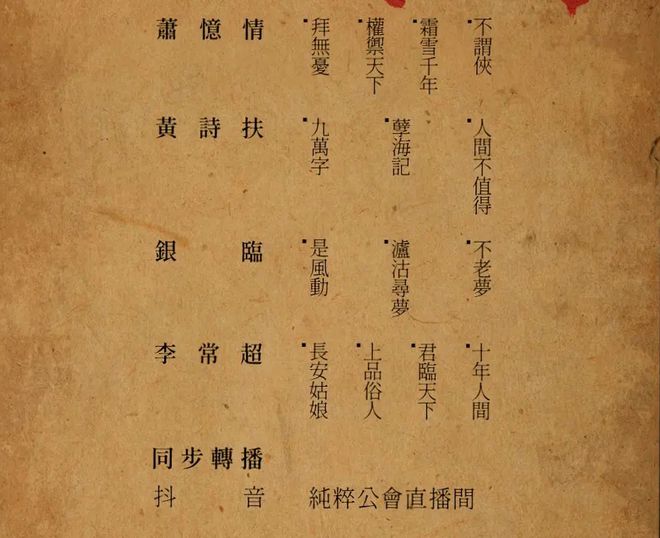 蕭憶情
拜無憂
權禦天下
霜雪千年
不謂俠
黃詩扶
九萬字
孽海記
人間不值得
銀臨
是風動
瀘沽尋夢
不老夢
李常超
長安姑娘
上品俗人
君臨天下
十年人間
同步轉播
抖音 純粹公會直播間